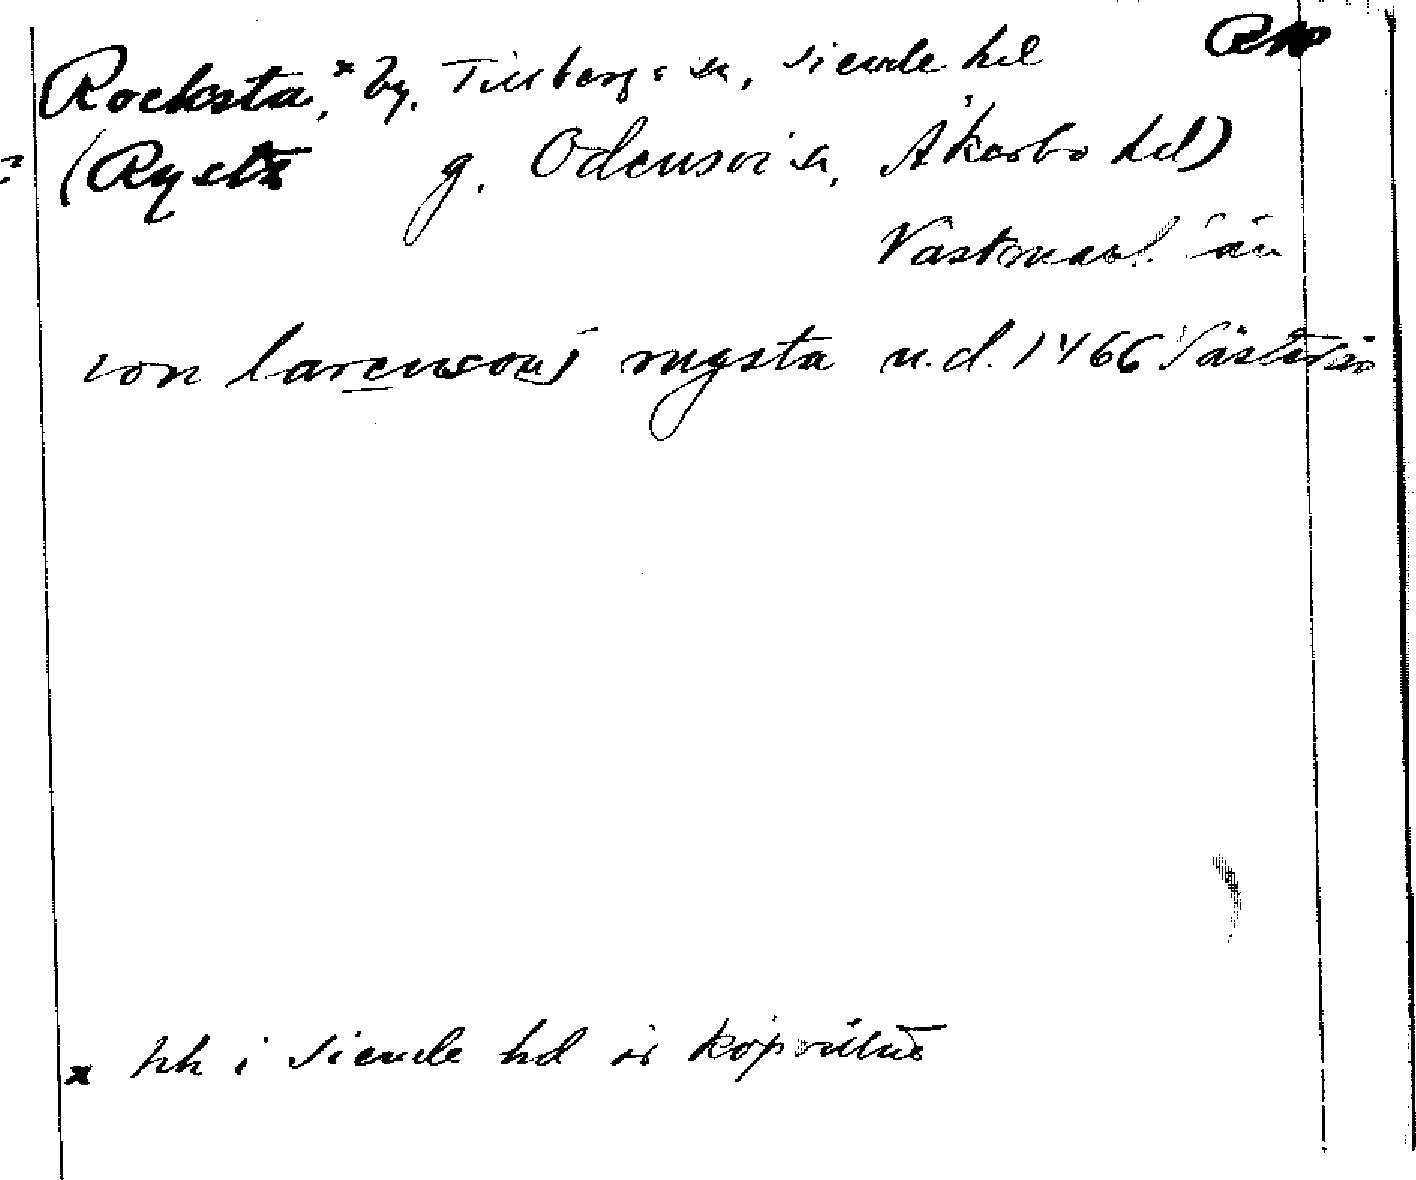 Rocksta,× by, Tillberga sn, Siende hd RAp
= (Rysta g. Odensvi sn, Åkerbo hd)
Västmanl. län
ion larenssons rugsta u.d. 1466 Västerås
× hh i Siende hd är köpvittne